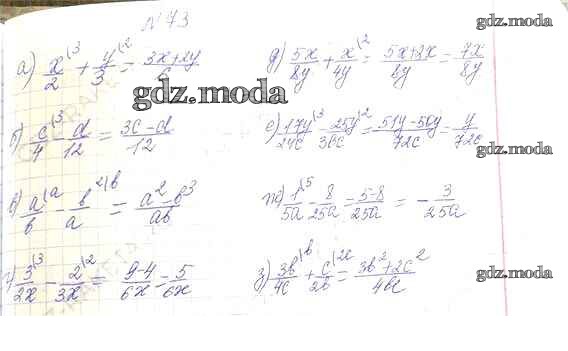 N 73
gdz.moda
а) x/2 \3 + y/3 \2 = 3x+2y/6
д) 5x/8y + x/4y \2 = 5x+2x/8y = 7x/8y
gdz.moda
б) c/4 \3 - d/12 = 3c-d/12
е) 17y/24c \3 - 25y/36c \2 = 51y-50y/72c = y/72c
gdz.moda
в) a/b \a - b²/a \b = a²-b³/ab
ж) 1/5a \5 - 8/25a = 5-8/25a = -3/25a
г) 3/2x \3 - 2/3x \2 = 9-4/6x = 5/6x
з) 3b/4c \b + c/2b \2c = 3b²+2c²/4bc
gdz.moda